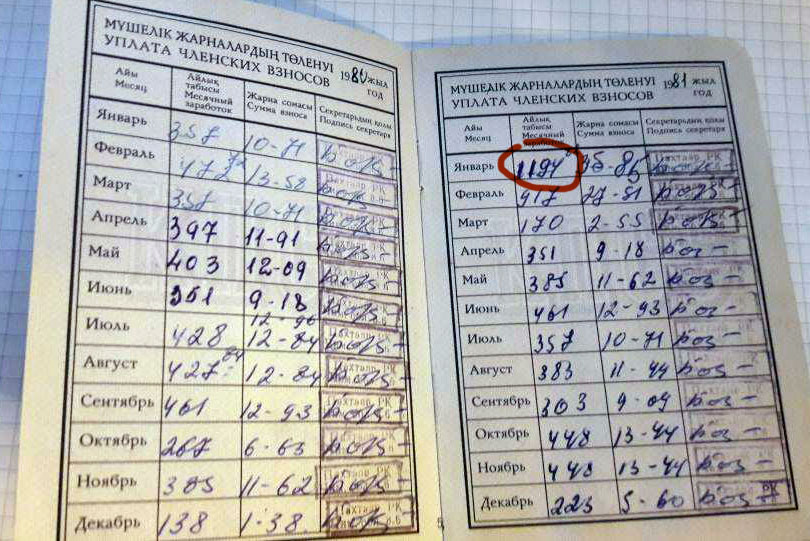 МҮШЕЛІК ЖАРНАЛАРДЫҢ ТӨЛЕНУІ
УПЛАТА ЧЛЕНСКИХ ВЗНОСОВ
1980 жыл
год
Айы
Месяц
Айлық табысы
Месячный заработок
Жарна сомасы
Сумма взноса
Секретардың қолы
Подпись секретаря
Январь 357 10-71
Февраль 472 13-58
Март 357 10-71
Апрель 397 11-91
Май 403 12-09
Июнь 351 9-18
Июль 428 12-84
Август 427 12-84
Сентябрь 461 12-93
Октябрь 267 6-63
Ноябрь 385 11-62
Декабрь 138 1-38
МҮШЕЛІК ЖАРНАЛАРДЫҢ ТӨЛЕНУІ
УПЛАТА ЧЛЕНСКИХ ВЗНОСОВ
1981 жыл
год
Айы
Месяц
Айлық табысы
Месячный заработок
Жарна сомасы
Сумма взноса
Секретардың қолы
Подпись секретаря
Январь 1194 35-85
Февраль 917 27-51
Март 170 2-55
Апрель 351 9-18
Май 385 11-62
Июнь 461 12-93
Июль 357 10-71
Август 383 11-44
Сентябрь 303 9-09
Октябрь 448 13-44
Ноябрь 448 13-44
Декабрь 223 5-60